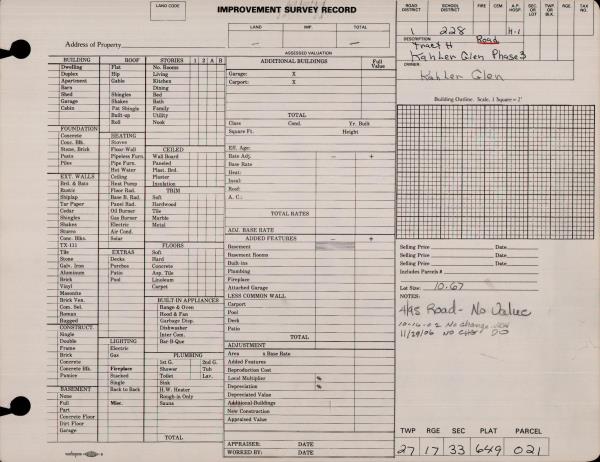 LAND CODE
IMPROVEMENT SURVEY RECORD
LAND IMP. TOTAL
Address of Property
ASSESSED VALUATION
ROAD DISTRICT SCHOOL DISTRICT FIRE CEM. A.P. HOSP. SEC. OR LOT TWP. OR BLK. RGE. TAX NO.
1 228 H-1
DESCRIPTION Road
Tract H
Kahler Glen Phase 3
OWNER
Kahler Glen
BUILDING
Dwelling
Duplex
Apartment
Bars
Shed
Garage
Cabin
FOUNDATION
Concrete
Conc. Blk.
Stone, Brick
Posts
Piles
EXT. WALLS
Brd. & Bats
Rustic
Shiplap
Tar Paper
Cedar
Shingles
Shakes
Stucco
Conc. Blks.
TX-111
Tile
Stone
Galv. Iron
Aluminum
Brick
Vinyl
Masonite
Brick Ven.
Com. Sel.
Roman
Rugged
CONSTRUCT.
Single
Double
Frame
Brick
Concrete
Conc. Blk.
Pumice
BASEMENT
None
Full
Part
Concrete Floor
Dirt Floor
Garage
ROOF
Flat
Hip
Gable
Shingles
Shakes
Pat Shingle
Built-up
Roll
HEATING
Stoves
Floor Wall
Pipeless Furn.
Pipe Furn.
Hot Water
Ceiling
Heat Pump
Floor Rad.
Base B. Rad.
Panel Rad.
Oil Burner
Gas Burner
Electric
Air Cond.
Solar
EXTRAS
Decks
Porches
Patio
LIGHTING
Electric
Gas
Fireplace
Stacked
Single
Back to Back
Misc.
STORIES 1 2 A B
No. Rooms
Living
Kitchen
Dining
Bed
Bath
Family
Utility
Nook
CEILED
Wall Board
Paneled
Plast. Brd.
Plaster
Insulation
TRIM
Soft
Hardwood
Tile
Marble
Metal
FLOORS
Soft
Hard
Concrete
Asp. Tile
Linoleum
Carpet
BUILT-IN APPLIANCES
Range & Oven
Hood & Fan
Garbage Disp.
Dishwasher
Inter Com.
Bar-B-Que
PLUMBING
1st G. 2nd G.
Shower Tub
Toilet Lav.
Sink
H.W. Heater
Rough-in Only
Sauna
TOTAL
ADDITIONAL BUILDINGS Full Value
Garage: X
Carport: X
TOTAL
Class Cond. Yr. Built
Square Ft. Height
Eff. Age:
Rate Adj. - +
Base Rate
Heat:
Insul:
Roof:
A. C.:
TOTAL RATES
ADJ. BASE RATE
ADDED FEATURES - +
Basement
Basement Rooms
Built-ins
Plumbing
Fireplace
Attached Garage
LESS COMMON WALL
Carport
Pool
Deck
Patio
TOTAL
ADJUSTMENT
Area x Base Rate
Added Features
Reproduction Cost
Local Multiplier %
Depreciation %
Depreciated Value
Additional-Buildings
New Construction
Appraised Value
APPRAISER: DATE
WORKED BY: DATE
Building Outline. Scale, 1 Square = 2'
Selling Price Date
Selling Price Date
Selling Price Date
Includes Parcels #
Lot Size: 10.67
NOTES:
4/95 Road - No Value
10-16-02 No Change
11/29/06 NO CHG DO
TWP RGE SEC PLAT PARCEL
27 17 33 649 021